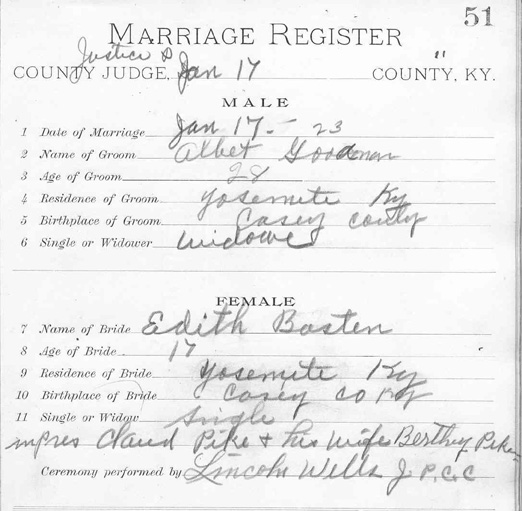 51
MARRIAGE REGISTER
Justice
COUNTY JUDGE, Jan 17 " COUNTY, KY.
MALE
1 Date of Marriage Jan 17 - 23
2 Name of Groom Albet Goodman
3 Age of Groom 28
4 Residence of Groom Yosemite Ky
5 Birthplace of Groom Casey county
6 Single or Widower Widower
FEMALE
7 Name of Bride Edith Basten
8 Age of Bride 17
9 Residence of Bride Yosemite Ky
10 Birthplace of Bride Casey co Ky
11 Single or Widow Single
Claud Pike + his wife Berthey Pike
Ceremony performed by Lincoln Wells J P. C. C